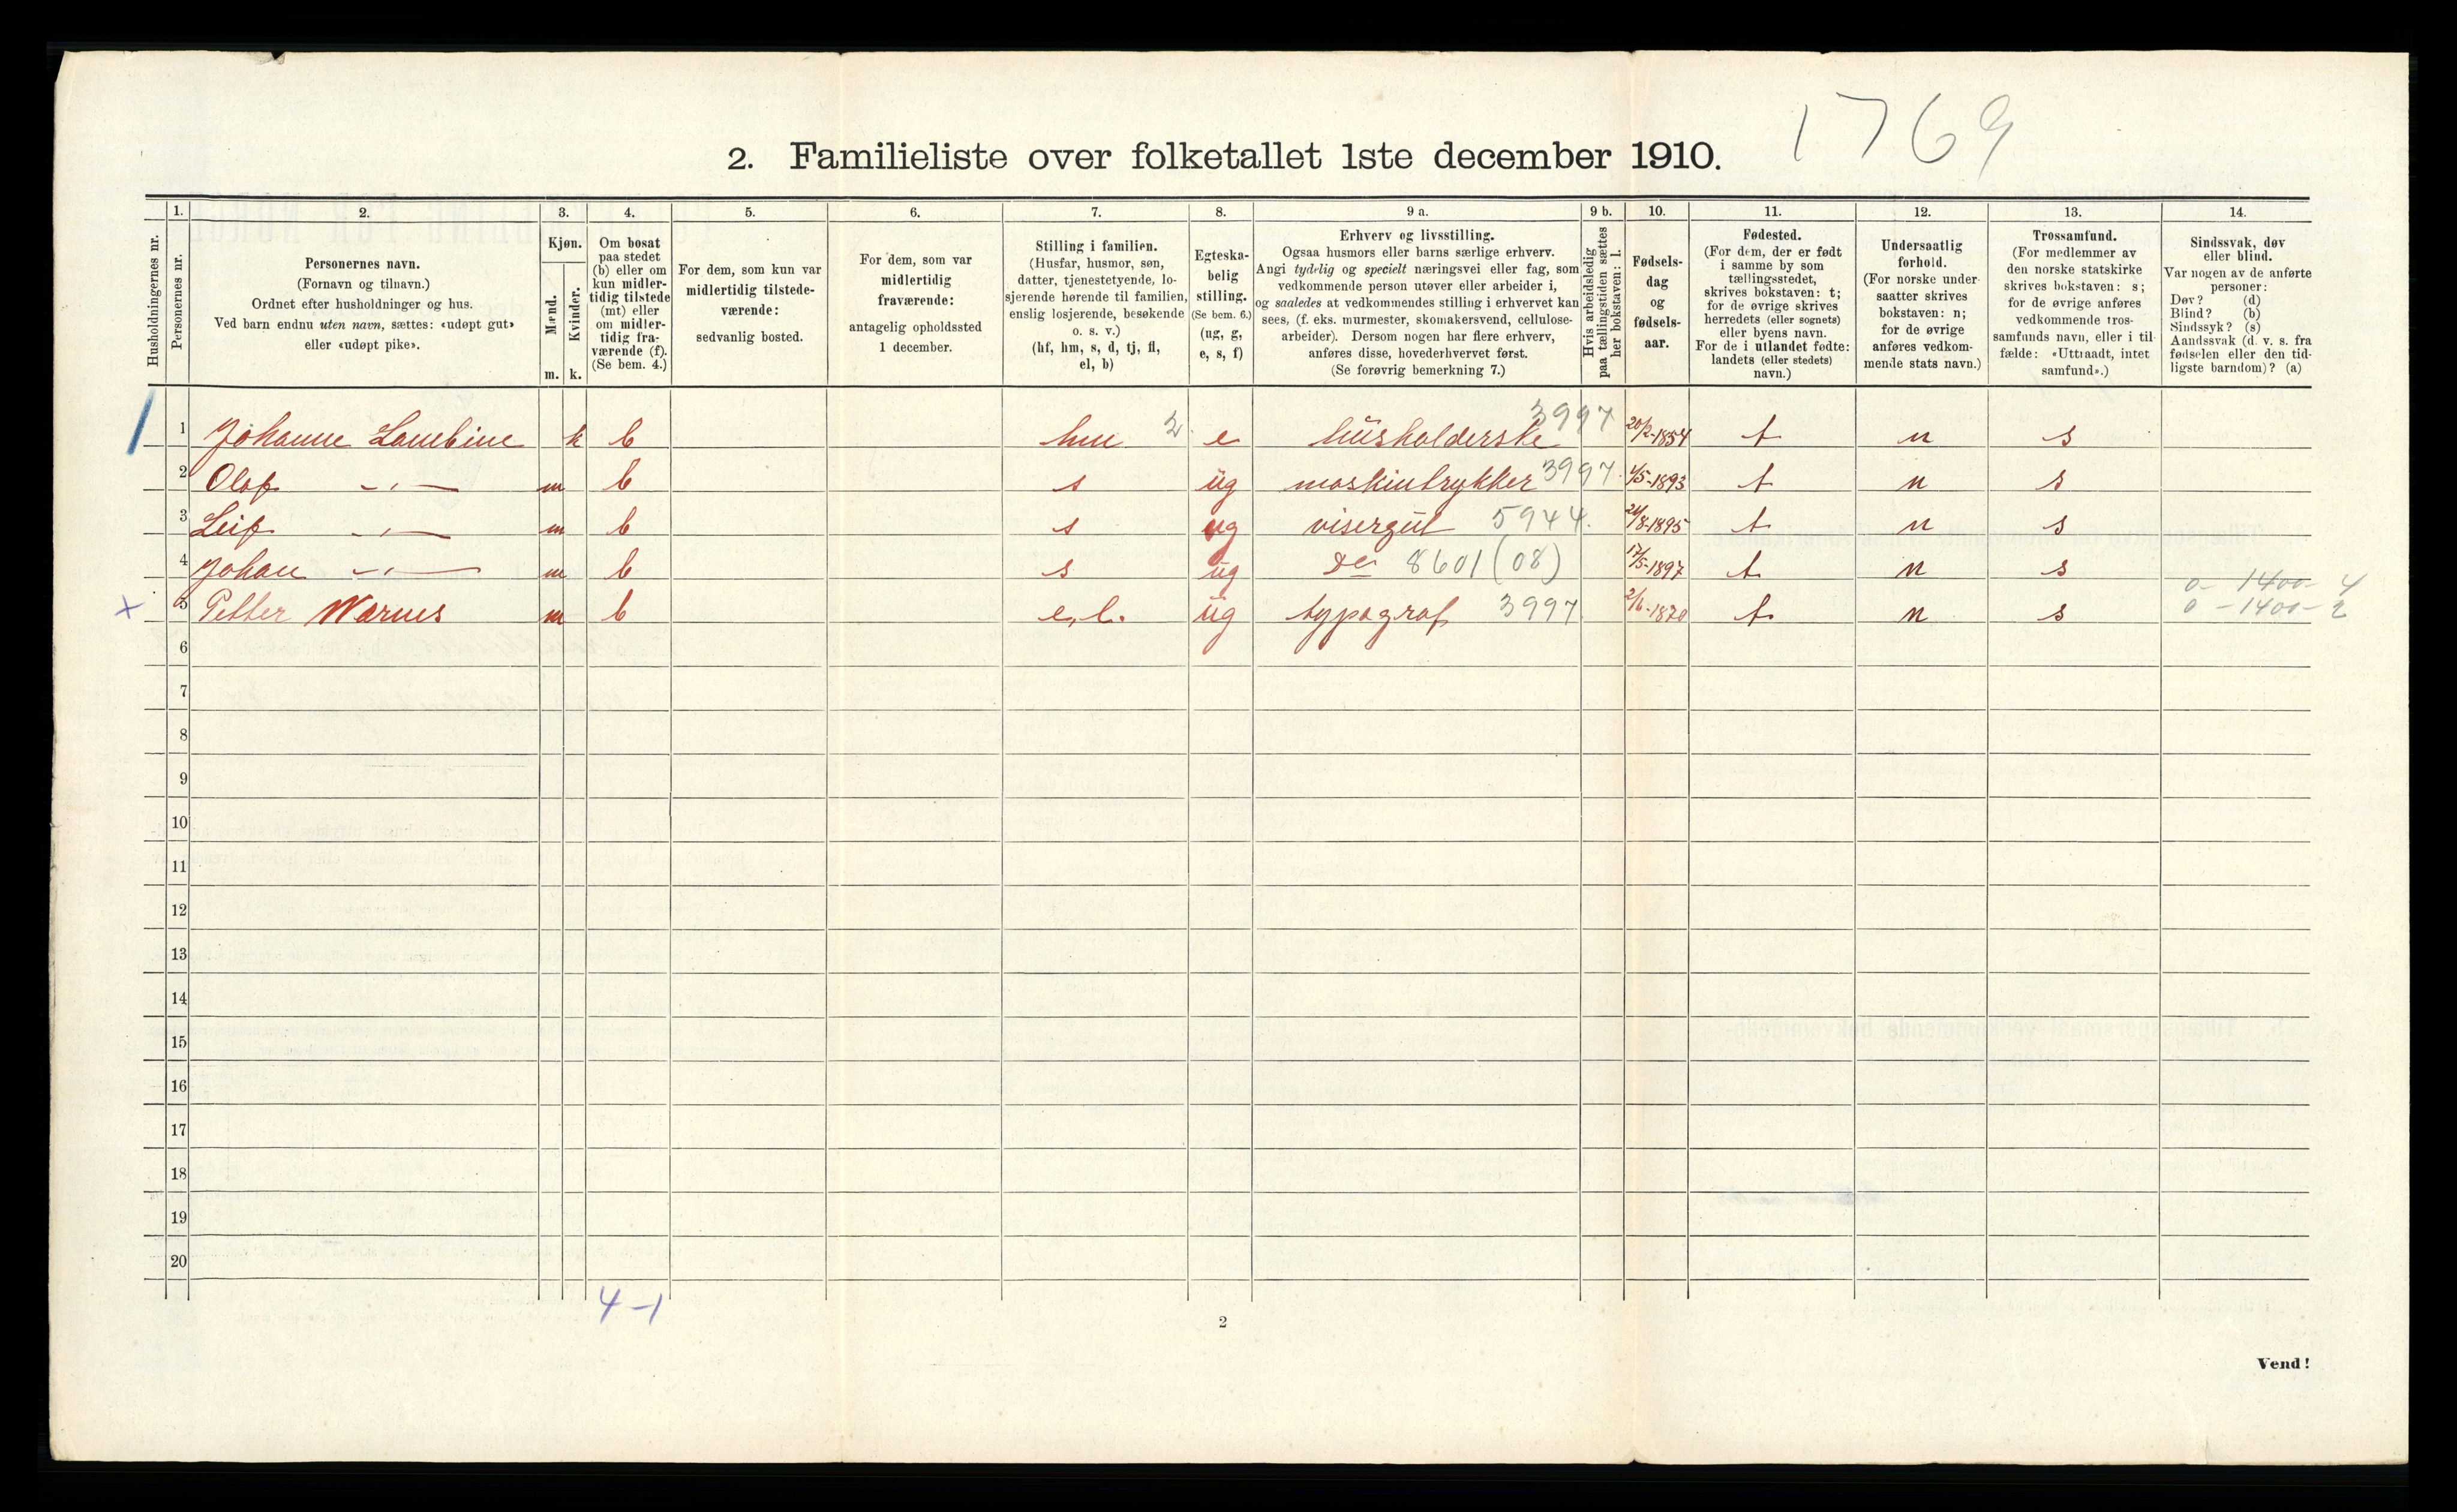 1769
2. Familieliste over folketallet 1ste december 1910.
Husholdningernes nr.
1.
Personernes nr.
2.
Personernes navn.
(Fornavn og tilnavn.)
Ordnet efter husholdninger og hus.
Ved barn endnu uten navn, sættes: «udøpt gut»
eller «udøpt pike».
3.
Kjøn.
Mænd.
Kvinder.
m. k.
4.
Om bosat
paa stedet
(b) eller om
kun midler-
tidig tilstede
(mt) eller
om midler-
tidig fra-
værende (f).
(Se bem. 4.)
5.
For dem, som kun var
midlertidig tilstede-
værende:
sedvanlig bosted.
6.
For dem, som var
midlertidig
fraværende:
antagelig opholdssted
1 december.
7.
Stilling i familien.
(Husfar, husmor, søn,
datter, tjenestetyende, lo-
sjerende hørende til familien,
enslig losjerende, besøkende
o. s. v.)
(hf, hm, s, d, tj, fl,
el, b)
8.
Egteska-
belig
stilling.
(Se bem. 6.)
(ug, g,
e, s, f)
9 a.
Erhverv og livsstilling.
Ogsaa husmors eller barns særlige erhverv.
Angi tydelig og specielt næringsvei eller fag, som
vedkommende person utøver eller arbeider i,
og saaledes at vedkommendes stilling i erhvervet kan
sees, (f. eks. murmester, skomakersvend, cellulose-
arbeider). Dersom nogen har flere erhverv,
anføres disse, hovederhvervet først.
(Se forøvrig bemerkning 7.)
9 b.
Hvis arbeidsledig
paa tællingstiden sættes
her bokstaven: l.
10.
Fødsels-
dag
og
fødsels-
aar.
11.
Fødested.
(For dem, der er født
i samme by som
tællingsstedet,
skrives bokstaven: t;
for de øvrige skrives
herredets (eller sognets)
eller byens navn.
For de i utlandet fødte:
landets (eller stedets)
navn.)
12.
Undersaatlig
forhold.
(For norske under-
saatter skrives
bokstaven: n;
for de øvrige
anføres vedkom-
mende stats navn.)
13.
Trossamfund.
(For medlemmer av
den norske statskirke
skrives bokstaven: s;
for de øvrige anføres
vedkommende tros-
samfunds navn, eller i til-
fælde: «Uttraadt, intet
samfund».)
14.
Sindssvak, døv
eller blind.
Var nogen av de anførte
personer:
Døv? (d)
Blind? (b)
Sindssyk? (s)
Aandssvak (d. v. s. fra
fødselen eller den tid-
ligste barndom)? (a)
1 Johanne Lambine k b hm 2 e husholderske 3997 20/2-1854 t n s
2 Olaf -"- m b s ug maskintrykker 3997 4/5-1893 t n s
3 Leif -"- m b s ug visergut 5944. 24/8-1895 t n s
4 Johan -"- m b s ug do 8601 (08) 17/5-1897 t n s 0-1400-4
x 5 Petter Warnes m b e.l. ug typograf 3997 2/6-1870 t n s 0-1400-2
6
7
8
9
10
11
12
13
14
15
16
17
18
19
20
4-1
2
Vend!